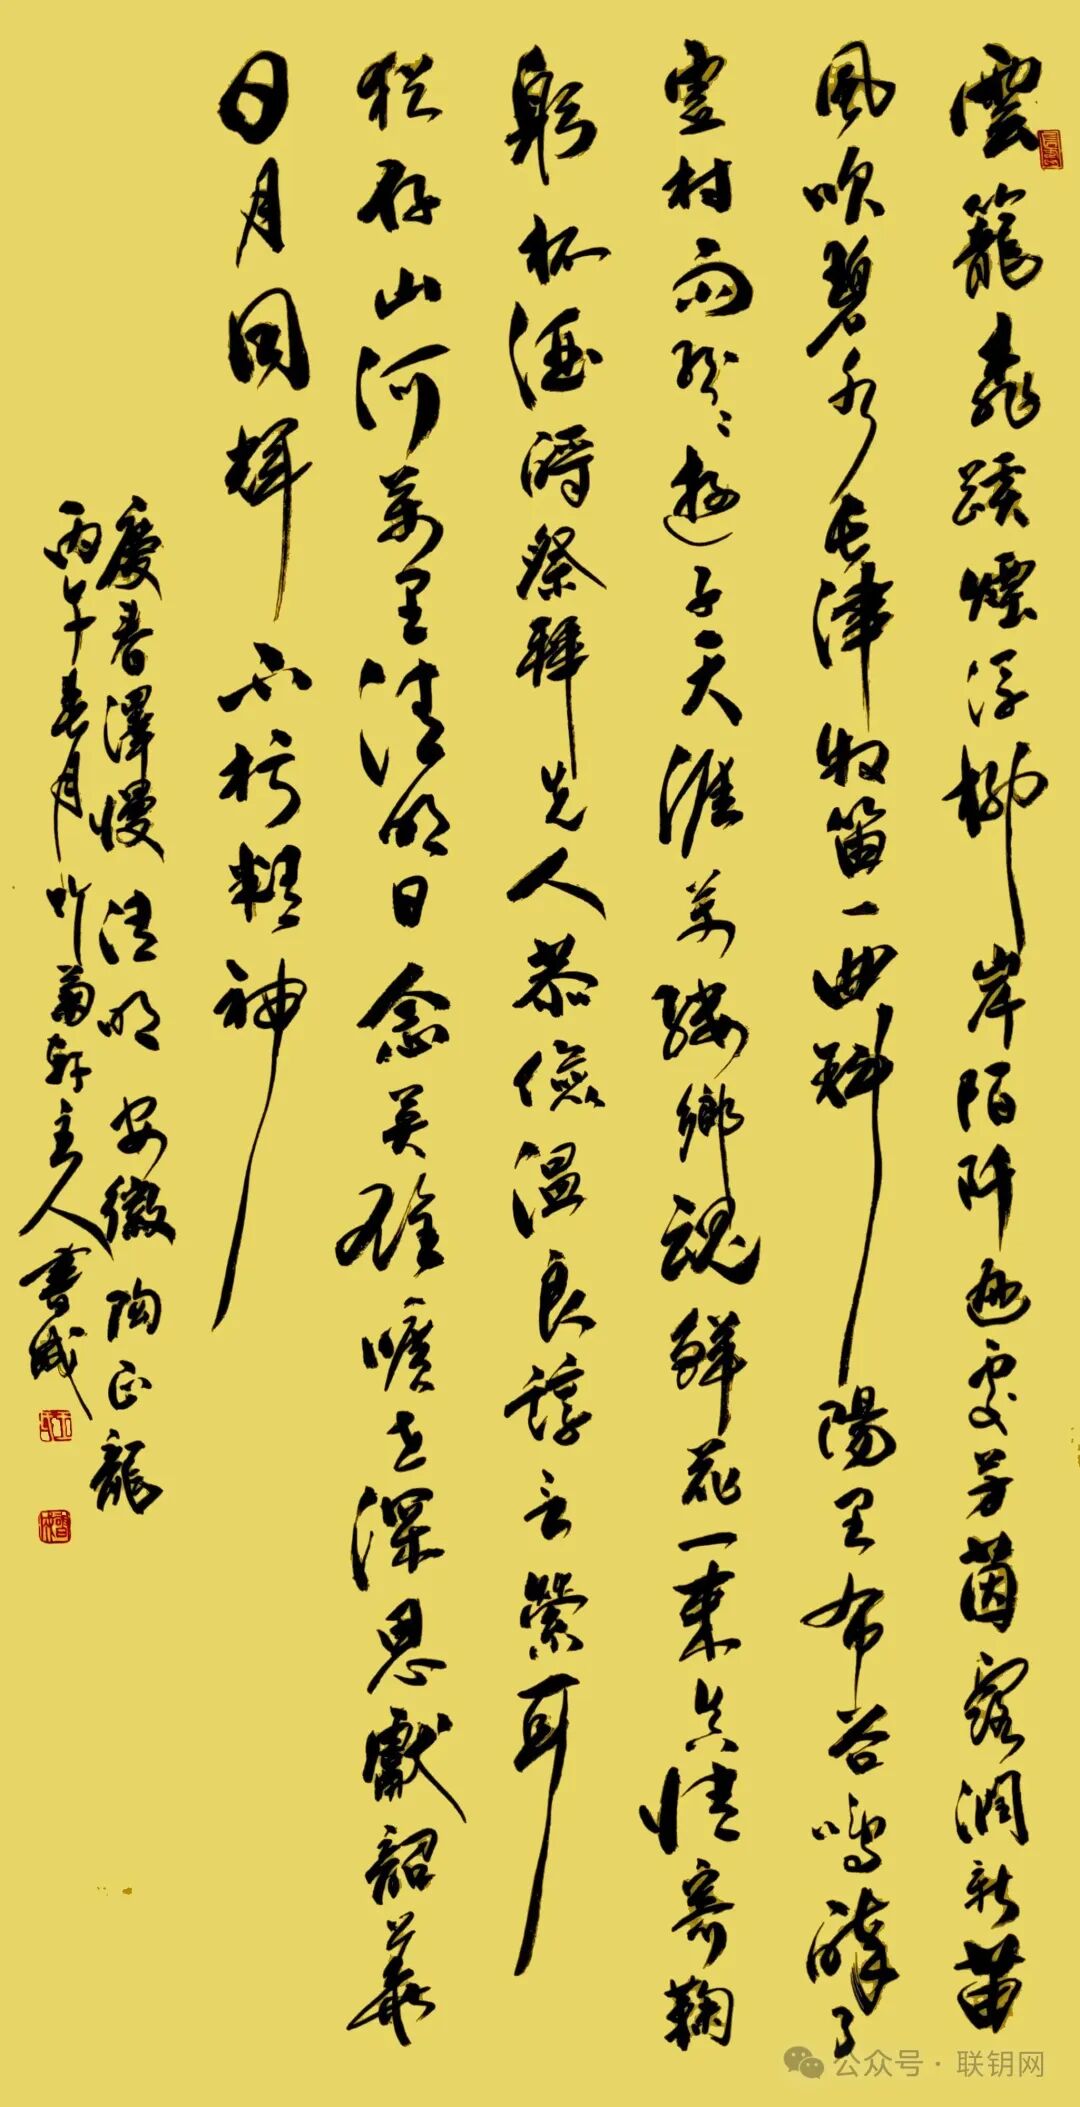 雲籠蹊煙浮柳岸陌阡遍處芳茵露潤新苗
風吹碧水長津牧笛一曲斜陽里布谷鳴醉了
村雨紛紛遊子天涯萬縷鄉魂鮮花一束真情寄鞠
躬杯酒酹祭拜先人恭儉溫良諄言縈耳
猶存山河萬里清明日念英雄曠世深思獻韶華
日月同輝不朽精神
慶春澤慢 清明 安徽陶正龍
丙午春月吟菊軒主人書
公众号·联钥网